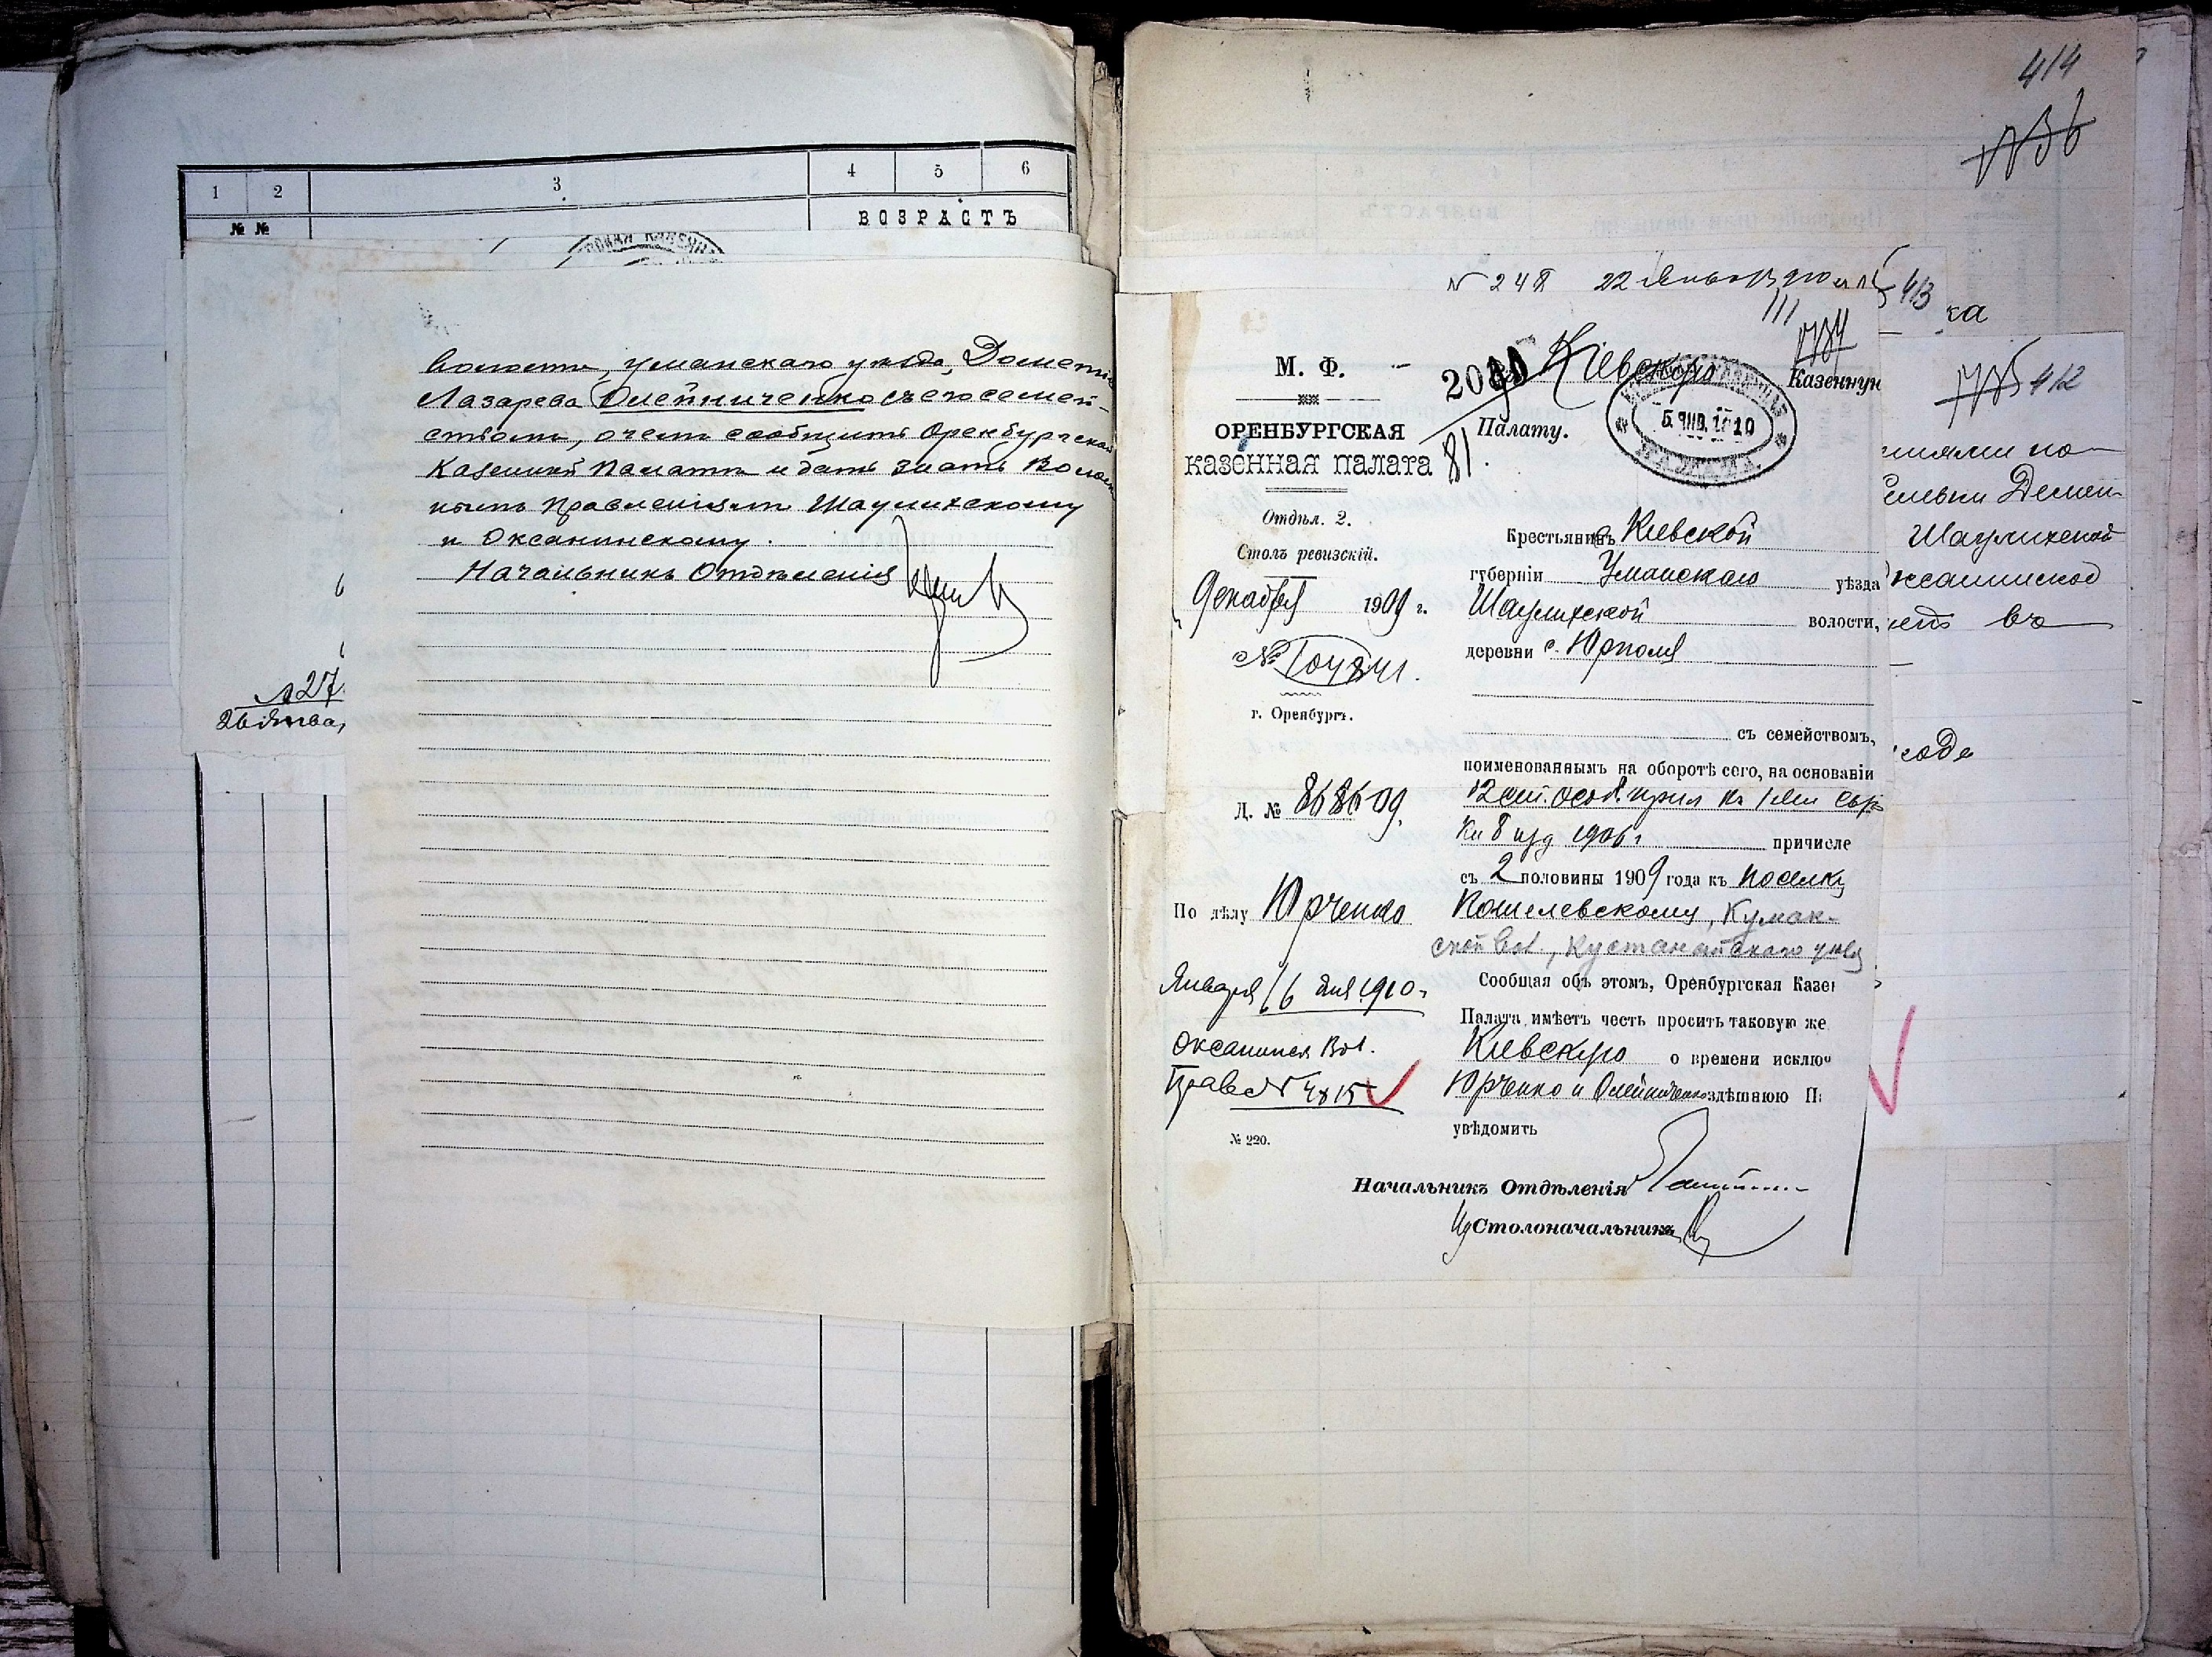 1 2 3 4 5 6
№ № ВОЗРАСТЪ
волости, уманскаго уѣзда, Дометія
Лазарева Олейниченко съ его семей-
ствомъ, о чемъ сообщить Оренбургской
Казенной Палатѣ и дать знать Волост
нымъ Правленіямъ Шаулихскому
и Оксанинскому.
Начальникъ Отдѣленія
№ 27
26 Янва
414
№ 248 22 Января 910
413
Кіевскую Казенную
Палату.
81.
М. Ф.
ОРЕНБУРГСКАЯ
КАЗЕННАЯ ПАЛАТА
Отдѣл. 2.
Столъ ревизскій.
Декабря 1909 г.
№
г. Оренбургъ.
Д. № 8686 09.
По дѣлу Юрченко
Января 16 дня 1910 г.
Оксанинск Вол.
Правл №
№ 220.
Крестьянинъ Кіевской
губерніи Уманскаго уѣзда
Шаулихской волости,
деревни с. Юрполя
съ семействомъ,
поименованнымъ на оборотѣ сего, на основаніи
12 ст. особ. прил къ
Кн 8 изд 1906 г. причисле
съ 2 половины 1909 года къ поселку
Кошелевскому, Кумак-
ской вол., Кустанайскаго уѣзд
Сообщая объ этомъ, Оренбургская Казен
Палата имѣетъ честь просить таковую же
Кіевскую о времени исклю
Юрченко и Олейниченко здѣшнюю П
увѣдомить
Начальникъ Отдѣленія
Столоначальникъ
ка
412
Шаулихской
въ